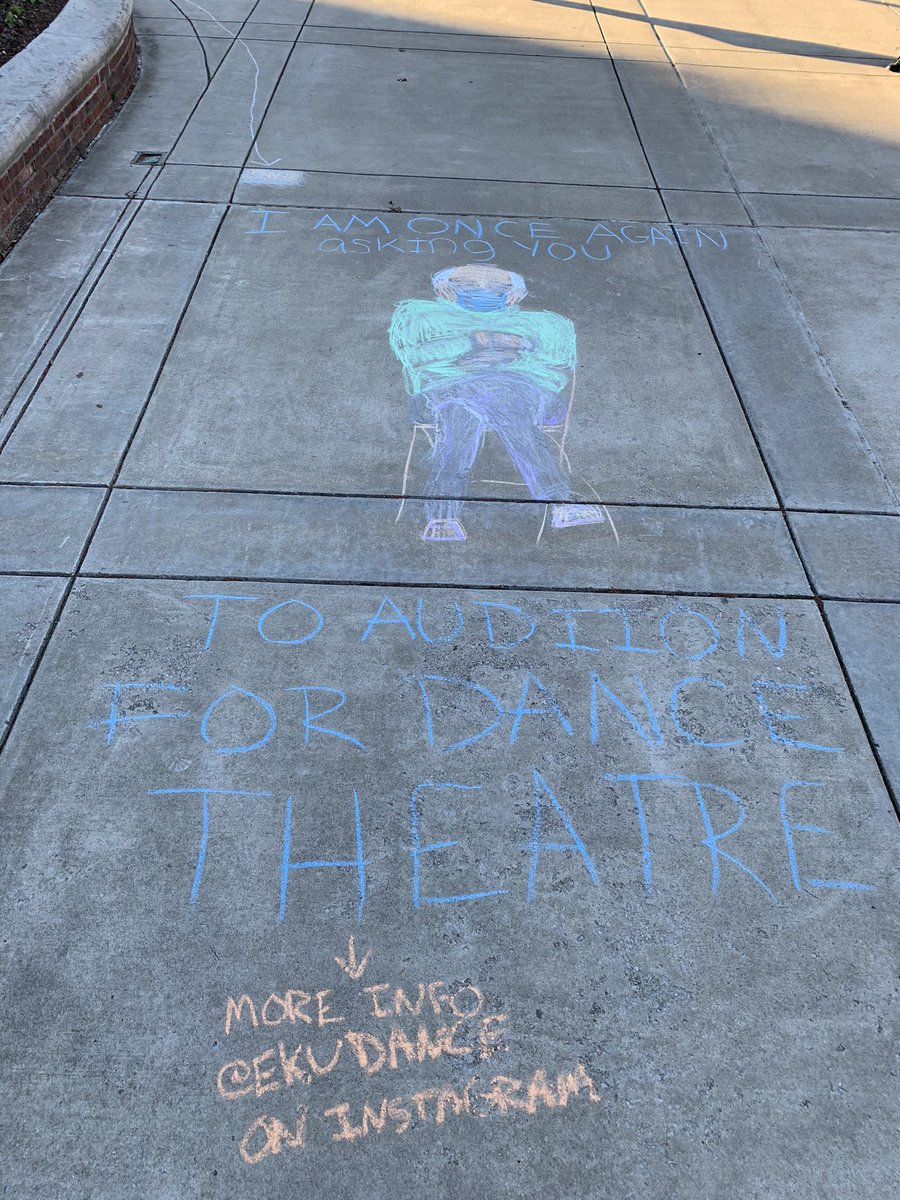 I AM ONCE AGAIN
asking YOU
TO AUDITION
FOR DANCE
THEATRE
MORE INFO
@EKUDANCE
ON INSTAGRAM